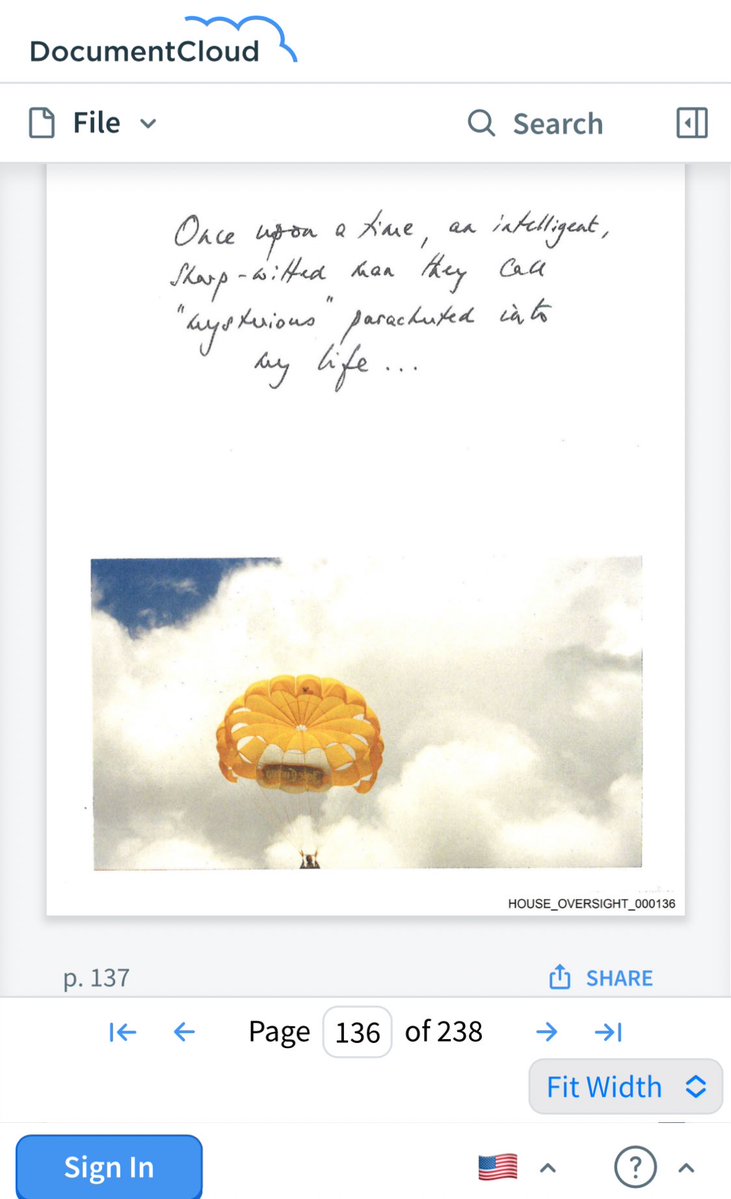 DocumentCloud
File
Search
Once upon a time, an intelligent,
sharp-witted man they call
"mysterious" parachuted into
my life ...
HOUSE_OVERSIGHT_000136
p. 137
SHARE
Page 136 of 238
Fit Width
Sign In
?